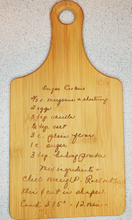 Sugar Cookies
1/2 c. margarine or shortening
2 eggs
1 tsp vanilla
1/2 tsp salt
3 c. plain flour
1 c. sugar
3 tsp baking powder
Mix ingredients -
chill overnight. Roll out
thin & cut in shapes.
Cook 375° - 12 min.